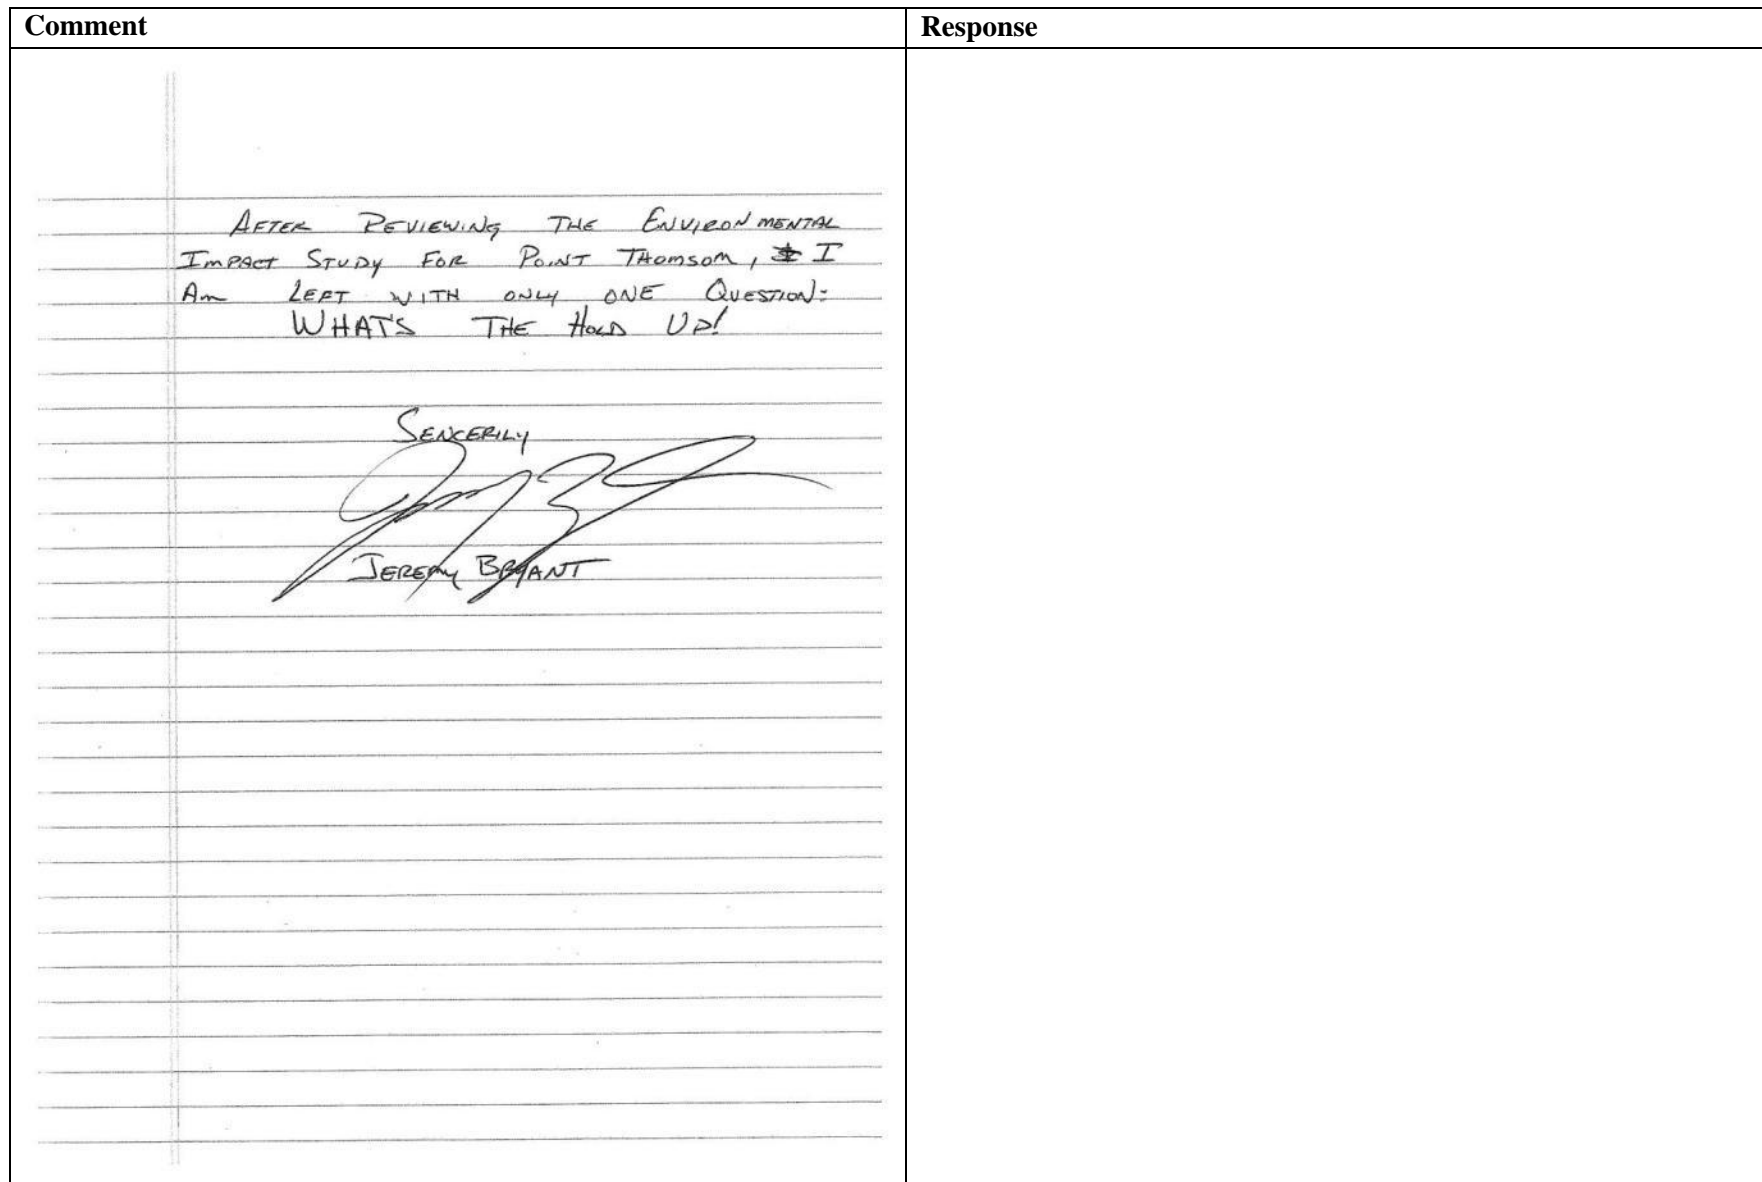 Comment
Response
AFTER REVIEWING THE ENVIRONMENTAL
IMPACT STUDY FOR POINT THOMSOM, I
AM LEFT WITH ONLY ONE QUESTION:
WHAT'S THE HOLD UP!
SENCERILY
JEREMY BRYANT